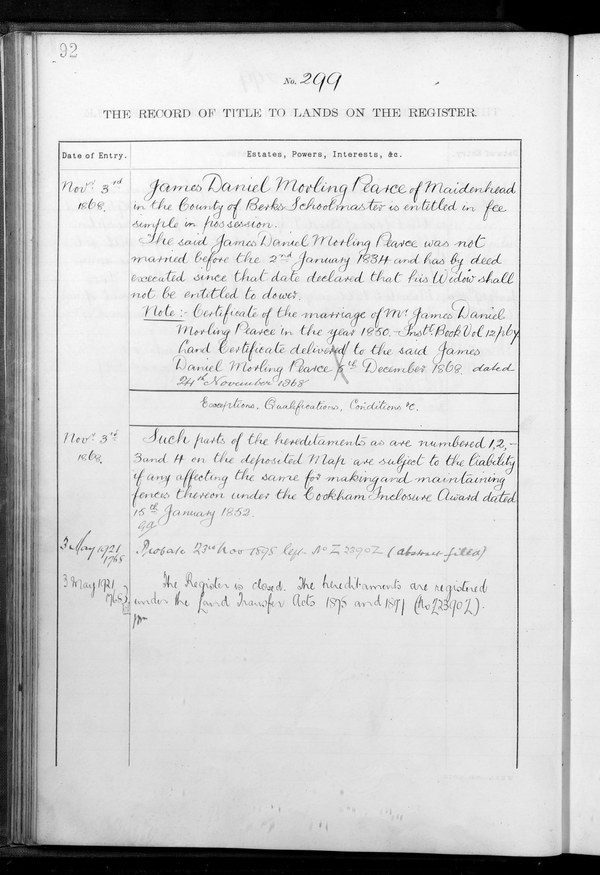 92
No. 299
THE RECORD OF TITLE TO LANDS ON THE REGISTER.
Date of Entry.
Estates, Powers, Interests, &c.
Novr. 3rd
1868.
James Daniel Morling Pearce of Maidenhead
in the County of Berks Schoolmaster is entitled in fee
simple in possession.
The said James Daniel Morling Pearce was not
married before the 2nd January 1834 and has by deed
executed since that date declared that his Widow shall
not be entitled to dower.
Note :- Certificate of the marriage of Mr. James Daniel
Morling Pearce in the year 1850. - Inst. Book Vol 12
Land Certificate delivered to the said James
Daniel Morling Pearce 5th December 1868 dated
24th November 1868
Exceptions, Qualifications, Conditions &c.
Novr. 3rd
1868.
Such parts of the hereditaments as are numbered 1, 2, -
3 and 4 on the deposited Map are subject to the liability
if any affecting the same for making and maintaining
fences thereon under the Cookham Inclosure Award dated
15th January 1852.
3 May 1921
1768
Probate 23rd Nov 1898 (abstract filed)
3 May 1921
1768
The Register is closed. The hereditaments are registered
under the Land Transfer Acts 1875 and 1897